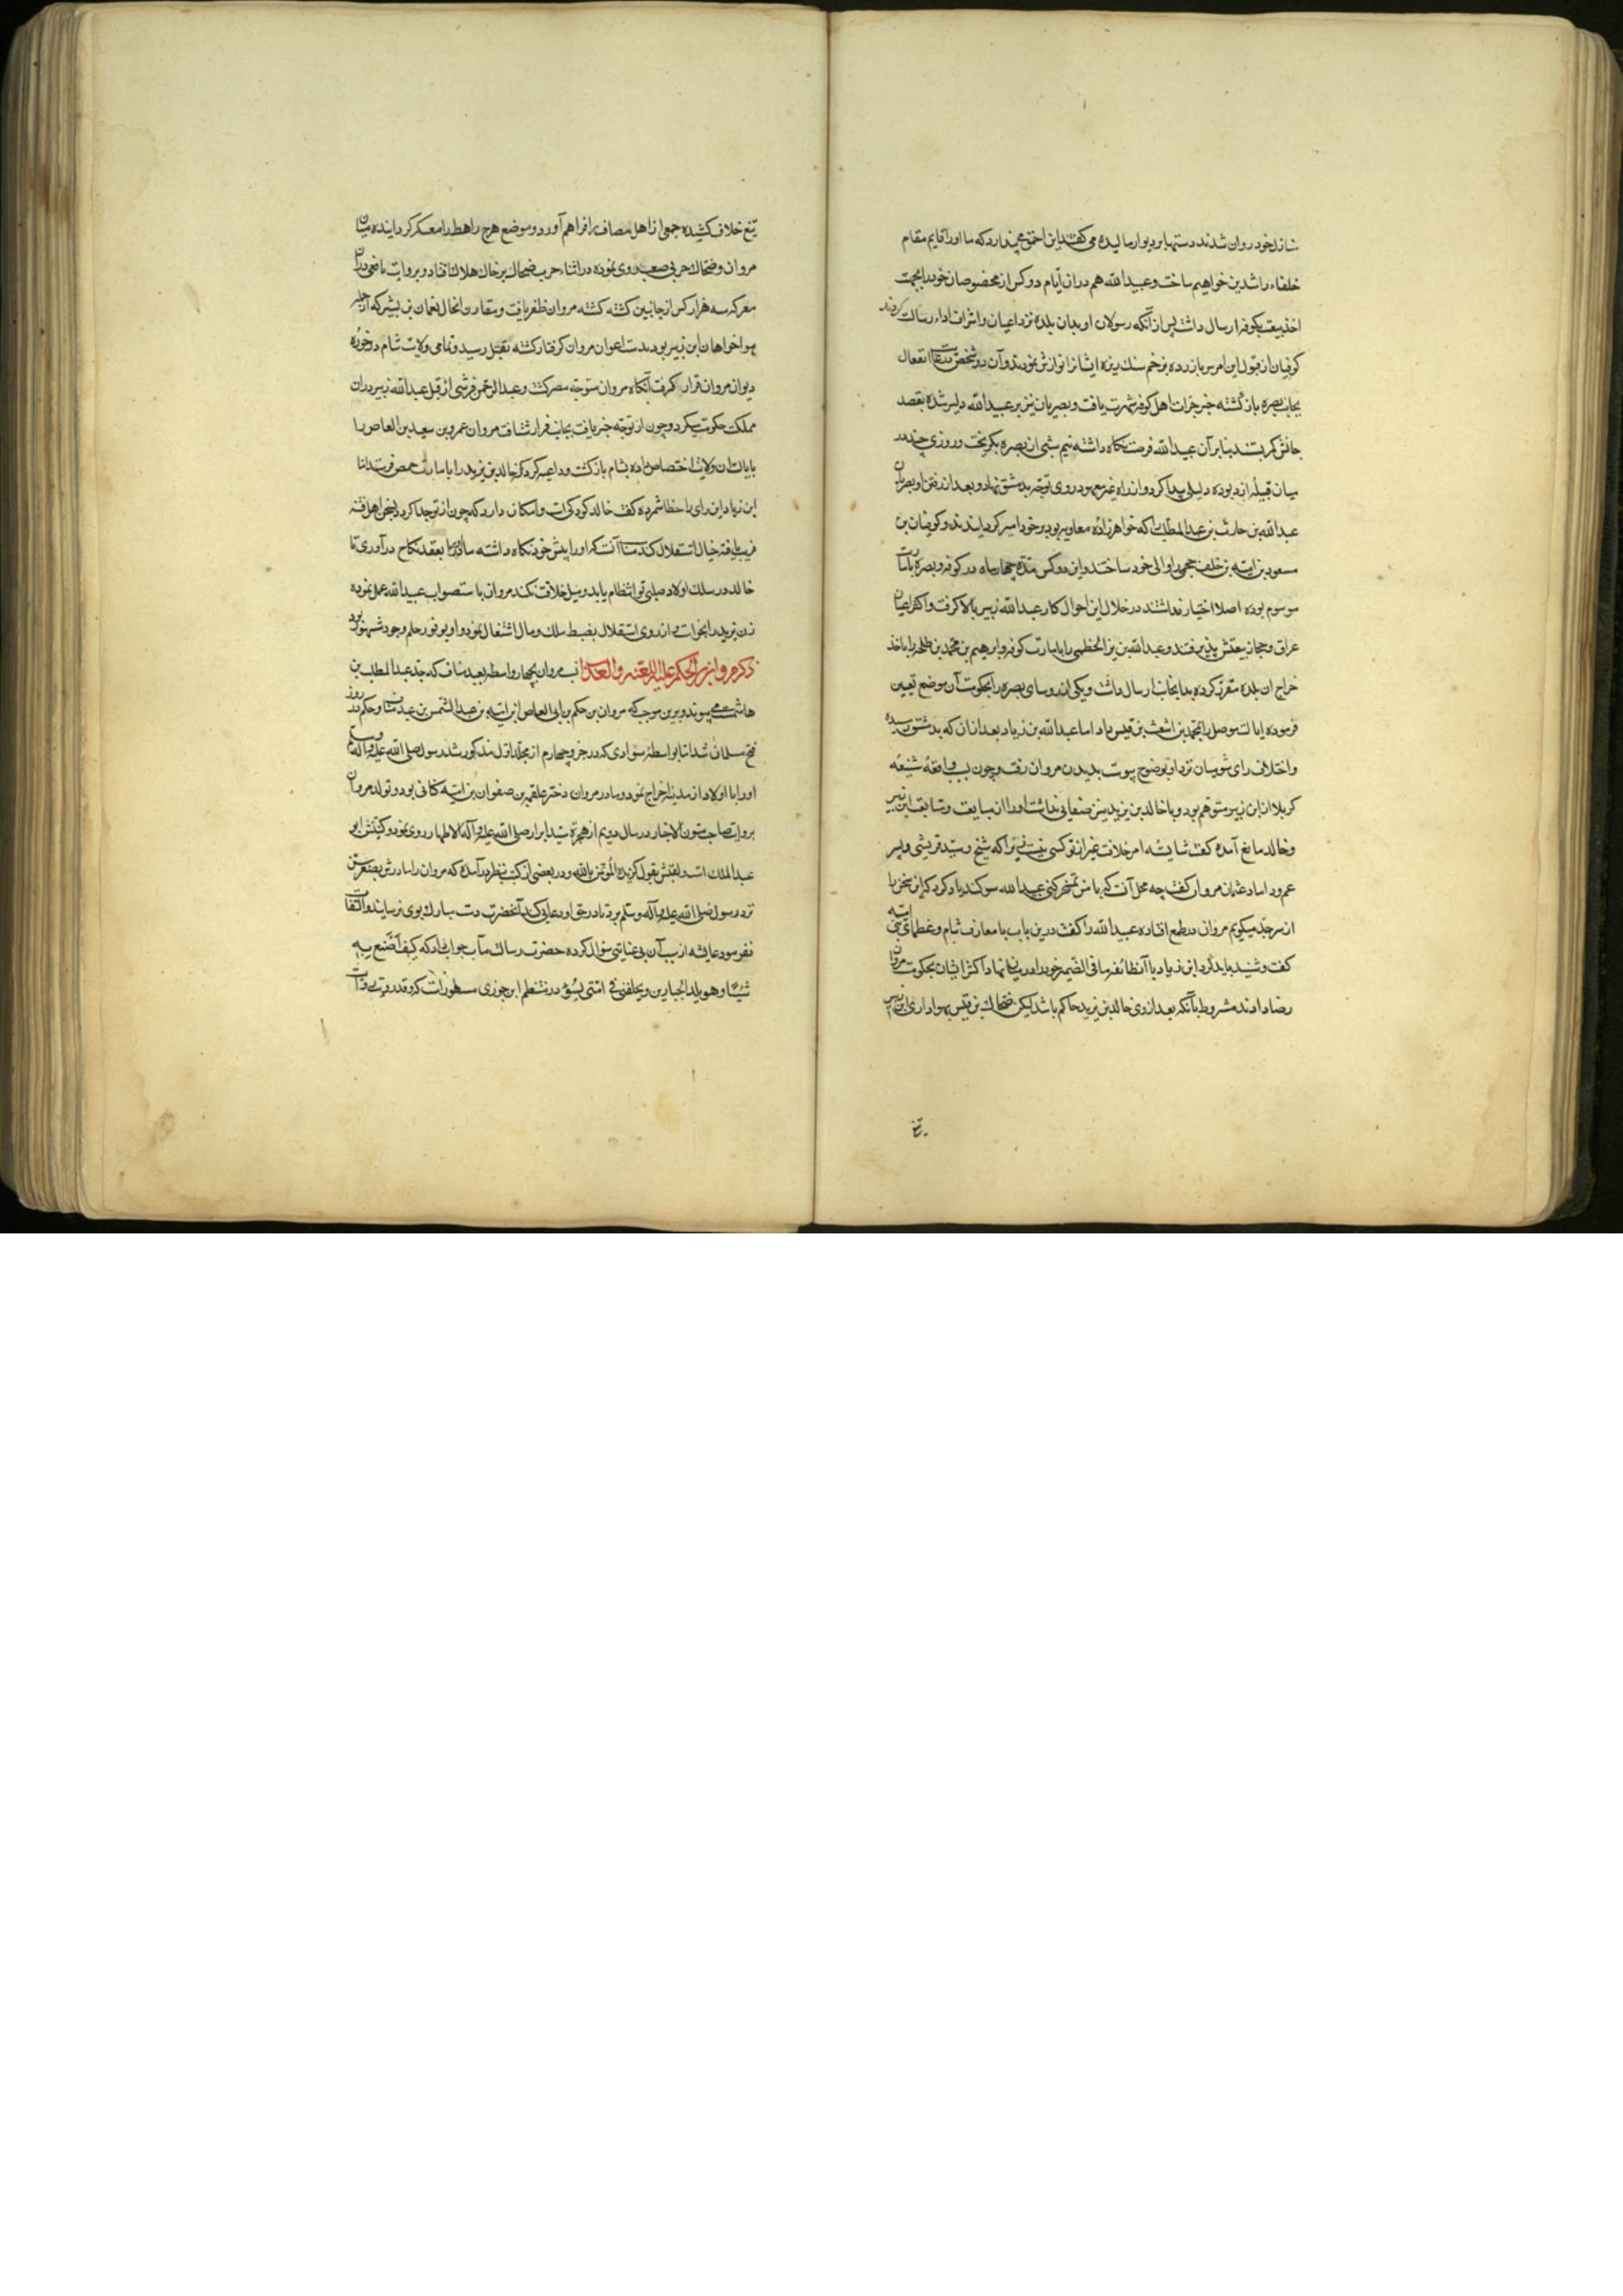 منازل خود روان شدند دستها بر دیوار مالیده می گفتند این احمق می پندارد که ما او را قایم مقام
خلفاء راشدین خواهیم ساخت و عبیدالله هم در آن ایام دو کس از مخصوصان خود را بجهت
اخذ بیعت بکوفه ارسال داشت پس از آنکه رسولان او بدان بلده نزد اعیان و اشراف اداء رسالت کردند
کوفیان از قبول این امر سر باز زده بزخم سنک ریزه ایشانرا نوازش نمودند و آن دو شخص انفعال
بجانب بصره بازگشته خبر جرات اهل کوفه شهرت یافت و بصریان نیز بر عبیدالله دلیر شده بقصد
جانش کمر بستند بنا برآن عبیدالله فرصت نکاه داشته نیم شبی از بصره بکریخت و روزی چند در
میان قبیله ازد بوده دلیلی پیدا کرد و از راه غیر معهود روی توجه بدمشق نهاد و بعد از رفتن او بصریان
عبدالله بن حارث بن عبدالمطلب را که خواهرزاده معاویه بود بر خود امیر گردانیدند و کوفیان بن
مسعود بن امیه بن خلف جمحی را والی خود ساختند و این دو کس مدة چهار ماه در کوفه و بصره بامارت
موسوم بوده اصلا اختیار نداشتند در خلال این احوال کار عبدالله زبیر بالا گرفت و اکثر اعیان
عراق و حجاز بیعتش پذیرفتند و عبدالله بن یزید الخطمی را بامارت کوفه و ابرهیم بن محمد بن طلحه را باخذ
خراج ان بلده مقرر کرده بدانجانب ارسال داشت و یکی از روسای بصره را بحکومت آن موضع تعیین
فرموده ایالت موصل را بمحمد بن اشعث بن قیس داد اما عبدالله بن زیاد بعد از ان که بدمشق رسید
و اختلاف رای شومیان نزد او بوضوح پیوست بدیدن مروان رفت و چون بسبب واقعه شنیعه
کربلا از ابن زبیر متوهم بود و با خالد بن یزید نیز صفائی نداشت او را از مبایعت و متابعت ابن زبیر
و خالد مانع آمده گفت شایسته امر خلافت غیر از تو کسی نیست زیرا که شیخ و سید قریشی و پسر
عم و داماد عثمان مروان گفت چه محل آنست که با من تمسخر کنی عبیدالله سوکند یاد کرد که این سخن را
از سر جد میگویم مروان در طمع افتاده عبیدالله را گفت درین باب با معارف شام و عظمای بنی امیه
گفت و شنید باید کرد ابن زیاد با آن طائفه ما فی الضمیر خود را در میان نهاد اکثر ایشان بحکومت مروان
رضا دادند مشروط بآنکه بعد از وی خالد بن یزید حاکم باشد لیکن ضحاک بن قیس بهواداری ابن زبیر
تیغ
تیغ خلاف کشیده جمعی از اهل مصاف را فراهم آورد و موضع مرج راهط را معسکر گردانیده میان
مروان و ضحاک حربی صعب روی نموده در اثناء حرب ضحاک بر خاک هلاک افتاد و بروایت یافعی در آن
معرکه سه هزار کس از جانبین کشته کشته مروان ظفر یافت و مقارن انحال نعمان بن بشیر که از جمله
هواخواهان ابن زبیر بود بدست اعوان مروان گرفتار کشته بقتل رسید و تمامی ولایت شام در حوزه
دیوان مروان قرار گرفت آنگاه مروان متوجه مصر گشت و عبدالرحمن قرشی از قبل عبدالله زبیر در ان
مملکت حکومت میکرد و چون از توجه خبر یافت بجانب فرار شتافت مروان عمرو بن سعید بن العاص را
بایالت ان ولایت اختصاص داده بشام بازگشت و داعیه کرد که خالد بن یزید را بامارت حمص فرستد اما
ابن زیاد این رای را خطا شمرده گفت خالد کودکی است و امکان دارد که چون از تو جدا گردد بسخن اهل فتنه
فریب یافته خیال استقلال کند مناسب آنست که او را پیش خود نگاه داشته مادرش را بعقد نکاح درآوری تا
خالد در سلک اولاد صلبی تو انتظام یابد و میل خلافت نکند مروان باستصواب عبیدالله عمل نموده
زن یزید را بخواست و از روی استقلال بضبط ملک و مال اشتغال نمود و او بوفور حلم وجود مشهور بود
ذکر مروان بن الحکم علیه اللعنه والعذاب نسب مروان بچهار واسطه بعبد مناف که جد عبدالمطلب بن
هاشمست می پیوندد برین موجب که مروان بن حکم بن ابی العاص ابن امیه بن عبدالشمس بن عبد مناف و حکم در روز
فتح مسلمان شد اما بواسطه سوء ادبی که در جزو چهارم از مجلد اول مذکور شد رسول صلی الله علیه و آله و سلم
او را با اولاد از مدینه اخراج نمود و مادر مروان دختر علقمه بن صفوان بن امیه کنانی بود و تولد مروان
بروایت صاحب متون الاخبار در سال دویم از هجرة سید ابرار صلی الله علیه و آله الاطهار روی نمود و کنیتش ابو
عبدالملک است و لقبش بقول گزیده المؤتمن بالله و در بعضی از کتب بنظر در آمده که مروان را مادرش
نزد رسول صلی الله علیه و آله و سلم برد تا در حق او دعای خیر کند آنحضرت دست مبارک بوی نرسانید و التفات
نفرمود عایشه از سبب آن بی عنایتی سؤال کرده حضرت رسالت مآب جواب داد که کیف اصنع به
شیئا و هو یلد الجبارین و یخلفنی فی امتی بسوء در منتظم ابن جوزی مسطور است که